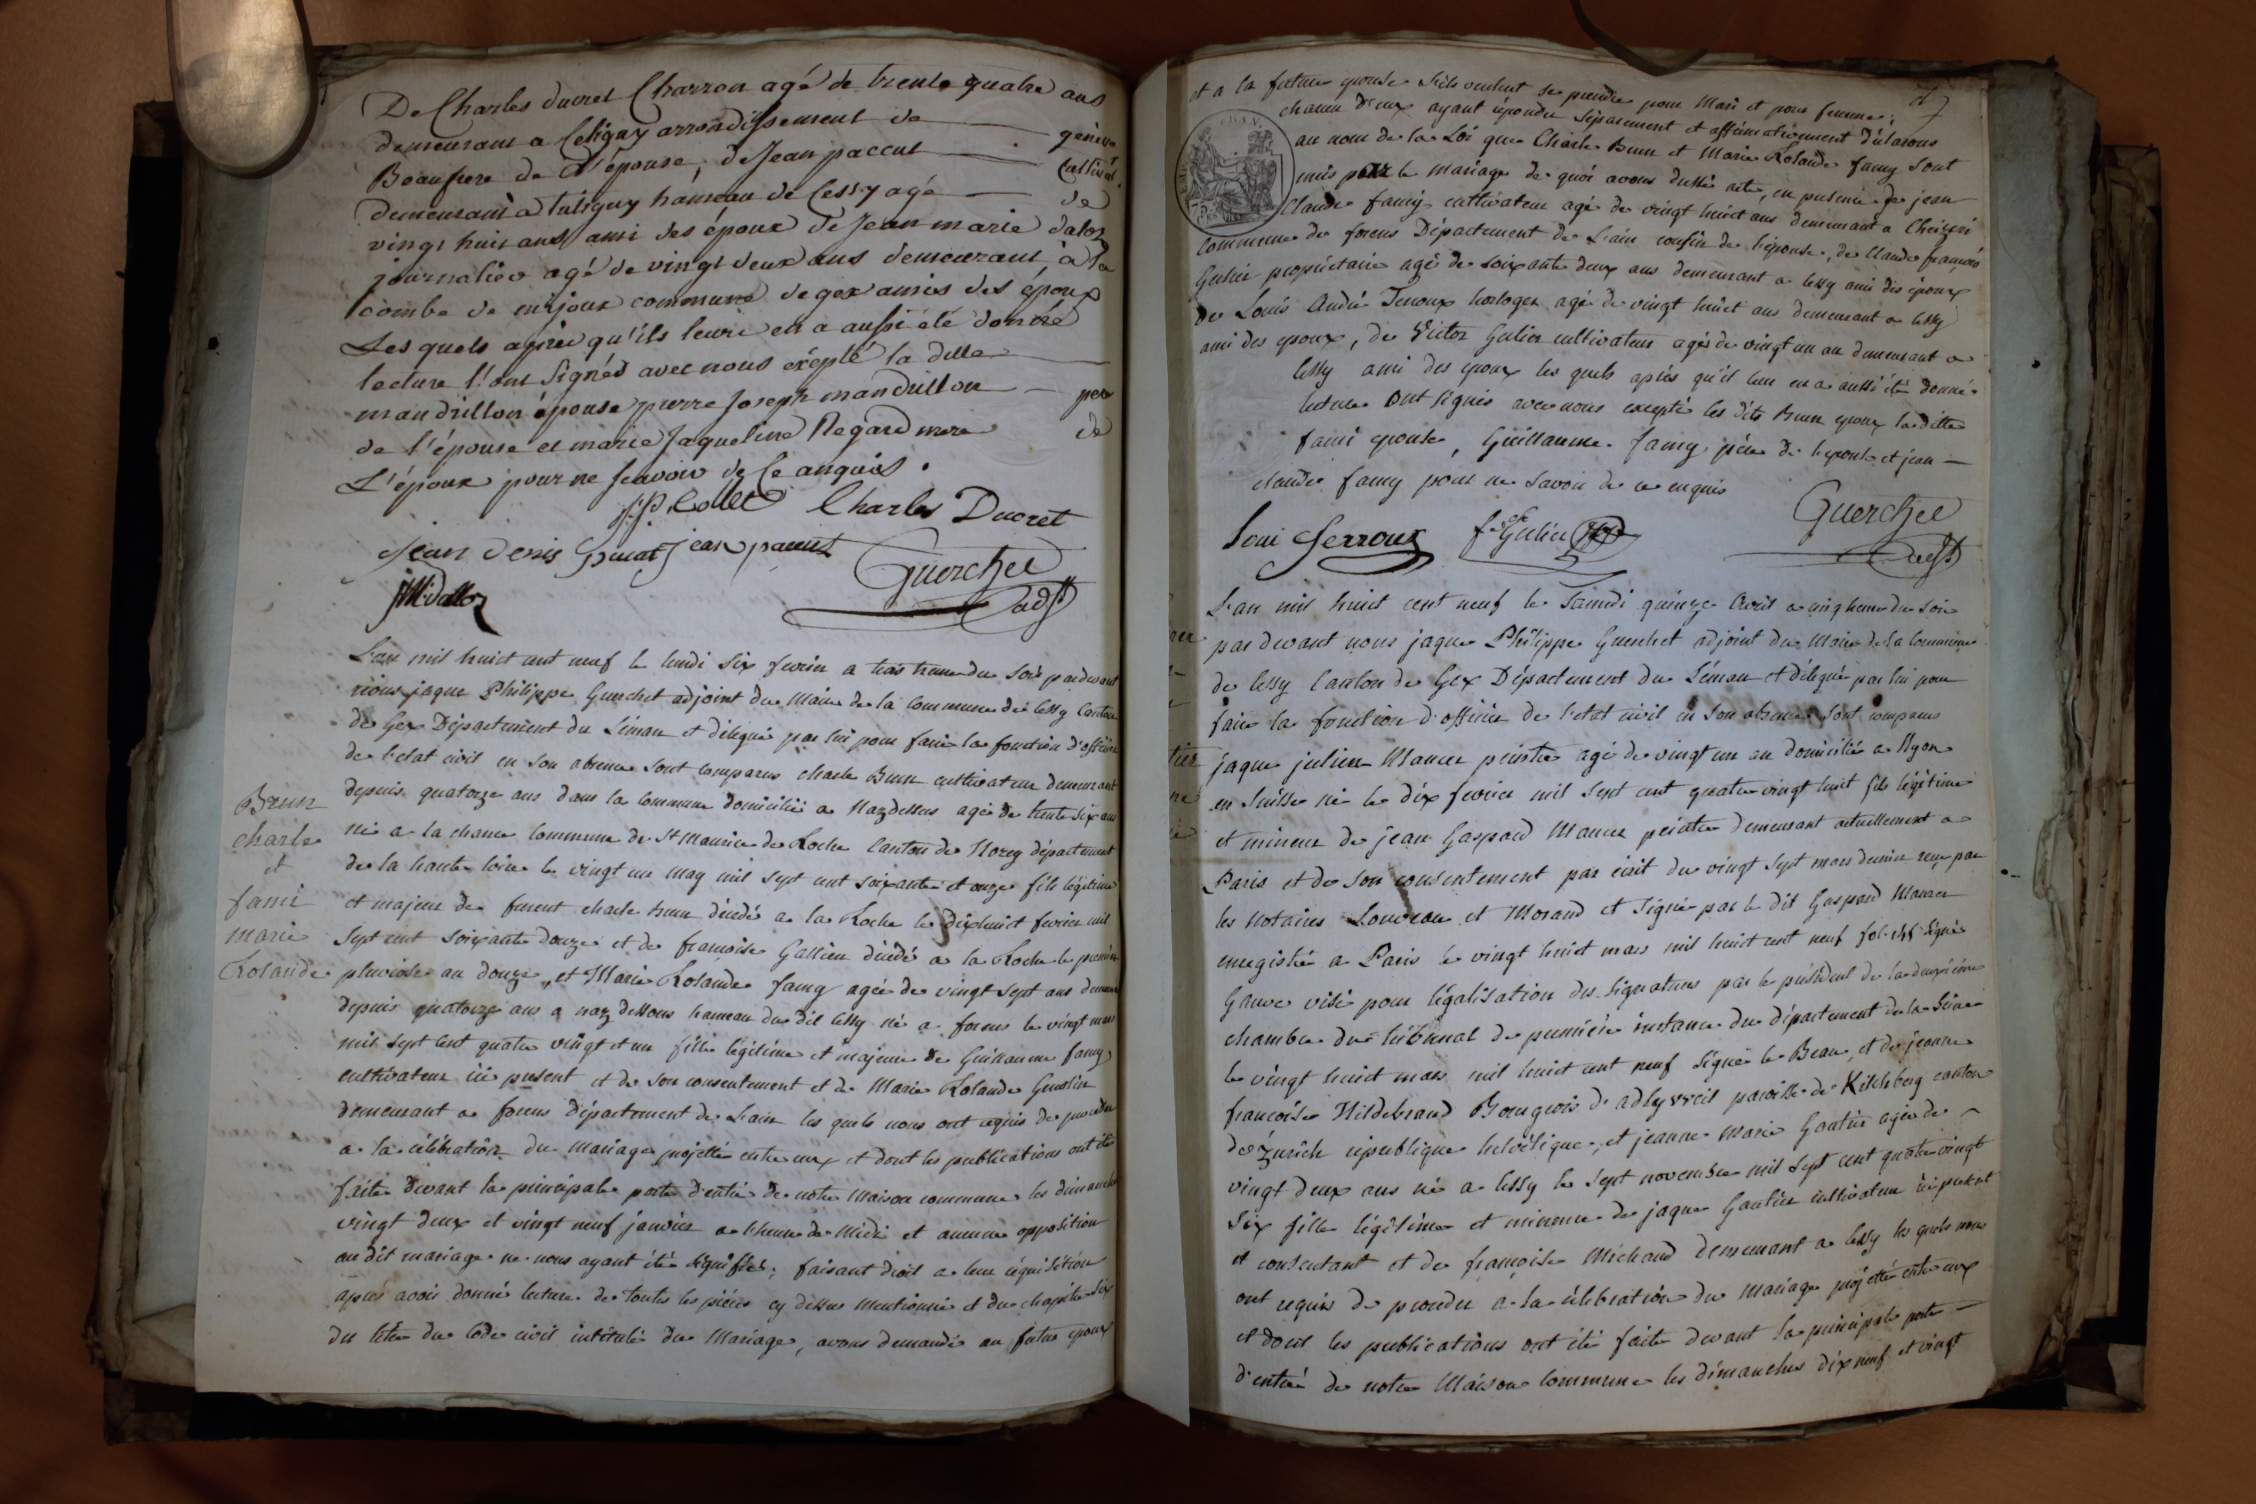 De Charles ducret Charron agé de trente quatre ans
demeurant a Celigny arrondissement de genève
Beaufrere de L'épouse, de Jean paccut Cultivat.
demeurant a tutigny hameau de Cessy agé de
vingt huit ans ami des époux de Jean marie dalloz
journalier agé de vingt deux ans demeurant à la
combe de mijoux commune de gex amis des époux
Les quels après qu'ils leurs en a aussi été donné
lecture l'ont signés avec nous exépté la ditte
mandrillon épouse pierre Joseph mandrillon per
de l'épouse et marie Jaqueline Regard mere de
L'époux pour ne scavoir de ce anquis.
J.P. Collet Charles Ducret
Jean Denis jean paccut
Guerchet
JM Dalloz adjt
L'an mil huit cent neuf le lundi six fevrier a trois heure du soir pardevant
nous jaque Philippe Guerchet adjoint du Maire de la Commune de Cessy Canton
de Gex Département du Léman et délégué par lui pour faire la fonction d'officier
de l'etat civil en son absence sont comparus charle Brun cultivateur demeurant
depuis quatorze ans dans la commune domicilié a Nazdessus agé de trente six ans
né a la chance Commune de St Maurice de Roche Canton de Vorey département
de la haute loire le vingt un may mil sept cent soixante et onze fils légitime
et majeur de furent charle brun décédé a la Roche le dixhuit fevrier mil
sept cent soixante douze et de francoise Gallien décédé a la Roche le premier
pluviose an douze, et Marie Rolande famy agée de vingt sept ans demeurant
depuis quatorze ans a naz dessous hameau du dit Cessy né a forens le vingt mars
mil sept cent quatre vingt et un fille légitime et majeure de Guillaume famy
cultivateur ici present et de son consentement et de Marie Rolande Genolin
demeurant a forens département de L'ain les quels nous ont requis de proceder
a la célébration du mariage projetté entre eux et dont les publications ont été
faite devant la principale porte d'entré de notre Maison commune les dimanche
vingt deux et vingt neuf janvier a l'heure de midi et aucune opposition
au dit mariage ne nous ayant été signifiée; faisant droit a leur réquisition
après avoir donné lecture de toutes les pièces cy dessus mentionné et du chapitre six
du titre du Code civil intitulé du Mariage, avons demandé au futur epoux
Brun
charle
et
fami
marie
Rolande
et a la future epouse s'ils veulent se prendre pour Mari et pour femme,
chacun d'eux ayant répondu séparement et affirmativement déclarons
au nom de la Loi que Charle Brun et Marie Rolande famy sont
unis par le mariage de quoi avons dressé acte, en presence de jean
Claude famy cultivateur agé de vingt huit ans demeurant a Chézeri
Commune de forens Département de L'ain cousin de l'épouse, de Claude françois
Gulier propriétaire agé de soixante deux ans demeurant a Cessy ami des époux
de Louis André Feroux horloger agé de vingt huit ans demeurant a Cessy
ami des epoux, de Victor Gulier cultivateur agé de vingt un an demeurant a
Cessy ami des epoux les quels après qu'il leur en a aussi été donné
lecture ont signés avec nous excepté les dits Brun epoux la ditte
fami epouse, Guillaume famy père de l'epouse et jean
claude famy pour ne savoir de ce enquis
Loui Ferroux f. Gulier Guerchet
adjt
L'an mil huit cent neuf le Samedi quinze Avril a cinq heure du soir
par devant nous jaque Philippe Guerchet adjoint du Maire de la Commune
de Cessy Canton de Gex Département du Léman et délégué par lui pour
faire la fonction d'officier de l'etat civil en son absence sont comparus
jaque julien Maurer peintre agé de vingt un an domicilié a Nyon
en Suisse né le dix fevrier mil sept cent quatre vingt huit fils légitime
et mineur de jean Gaspard Maurer peintre demeurant actuellement a
Paris et de son consentement par écrit du vingt sept mars dernier reçu par
les Notaires Louveau et Morand et signé par le dit Gaspard Maurer
enregistré a Paris le vingt huit mars mil huit cent neuf fol. signé
Gauve visé pour légalisation des signatures par le président de la deuxième
chambre du tribunal de première instance du département de la Seine
le vingt huit mars mil huit cent neuf signé le Beau, et de jeanne
francoise Hildebrand Bourgeois d'adlysweil paroisse de Kilchberg canton
de Zurich république helvétique, et jeanne Marie Gautier agée de
vingt deux ans né a Cessy le sept novembre mil sept cent quatre vingt
six fille légitime et mineure de jaque Gautier cultivateur ici present
et consentant et de françoise Michaud demeurant a Cessy les quels nous
ont requis de proceder a la célébration du mariage projetté entre eux
et dont les publications ont été faite devant la principale porte
d'entrée de notre Maison Commune les dimanches dix neuf et vingt